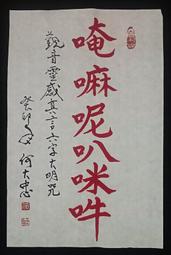 唵嘛呢叭咪吽
觀音靈感真言六字大明咒
癸卯年 何大忠